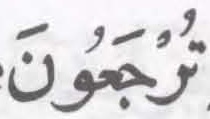 تُرْجَعُونَ